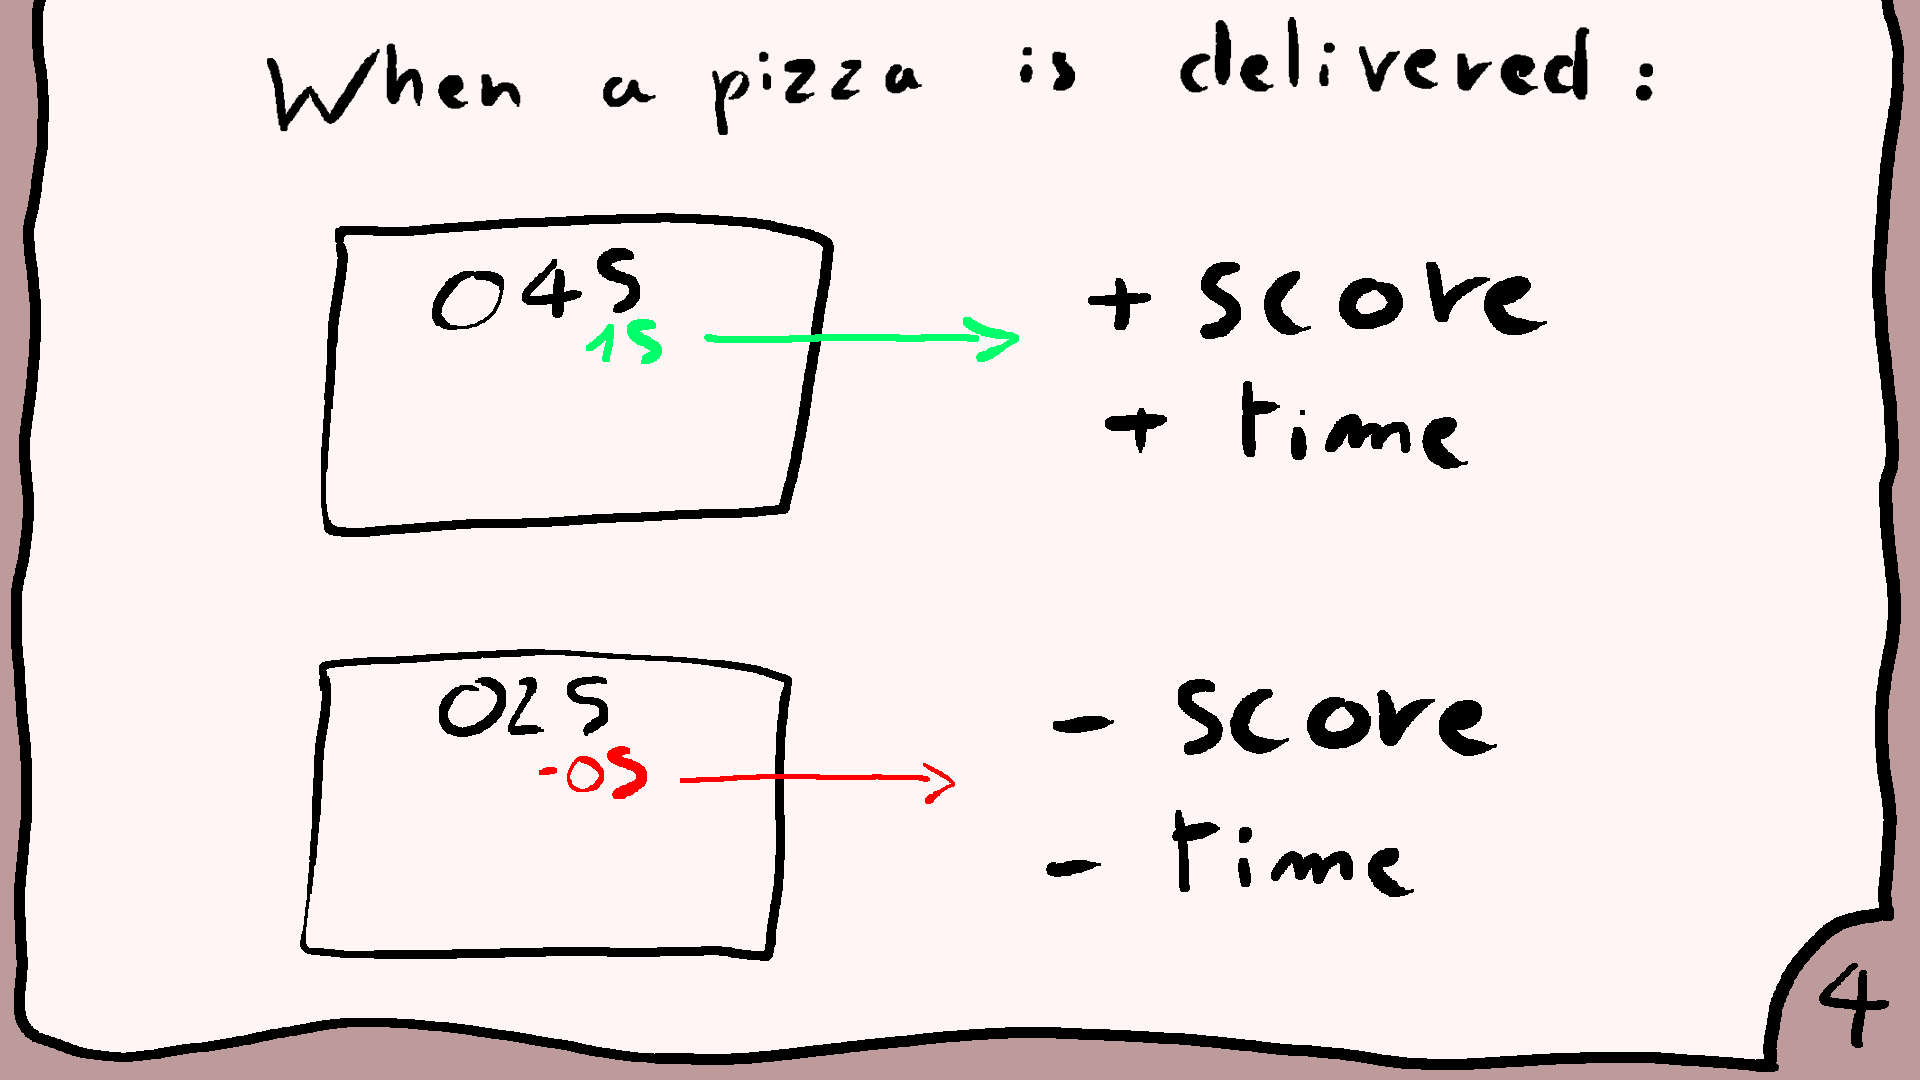 When a pizza is delivered:
045
15
+ score
+ time
025
-05
- score
- time
4